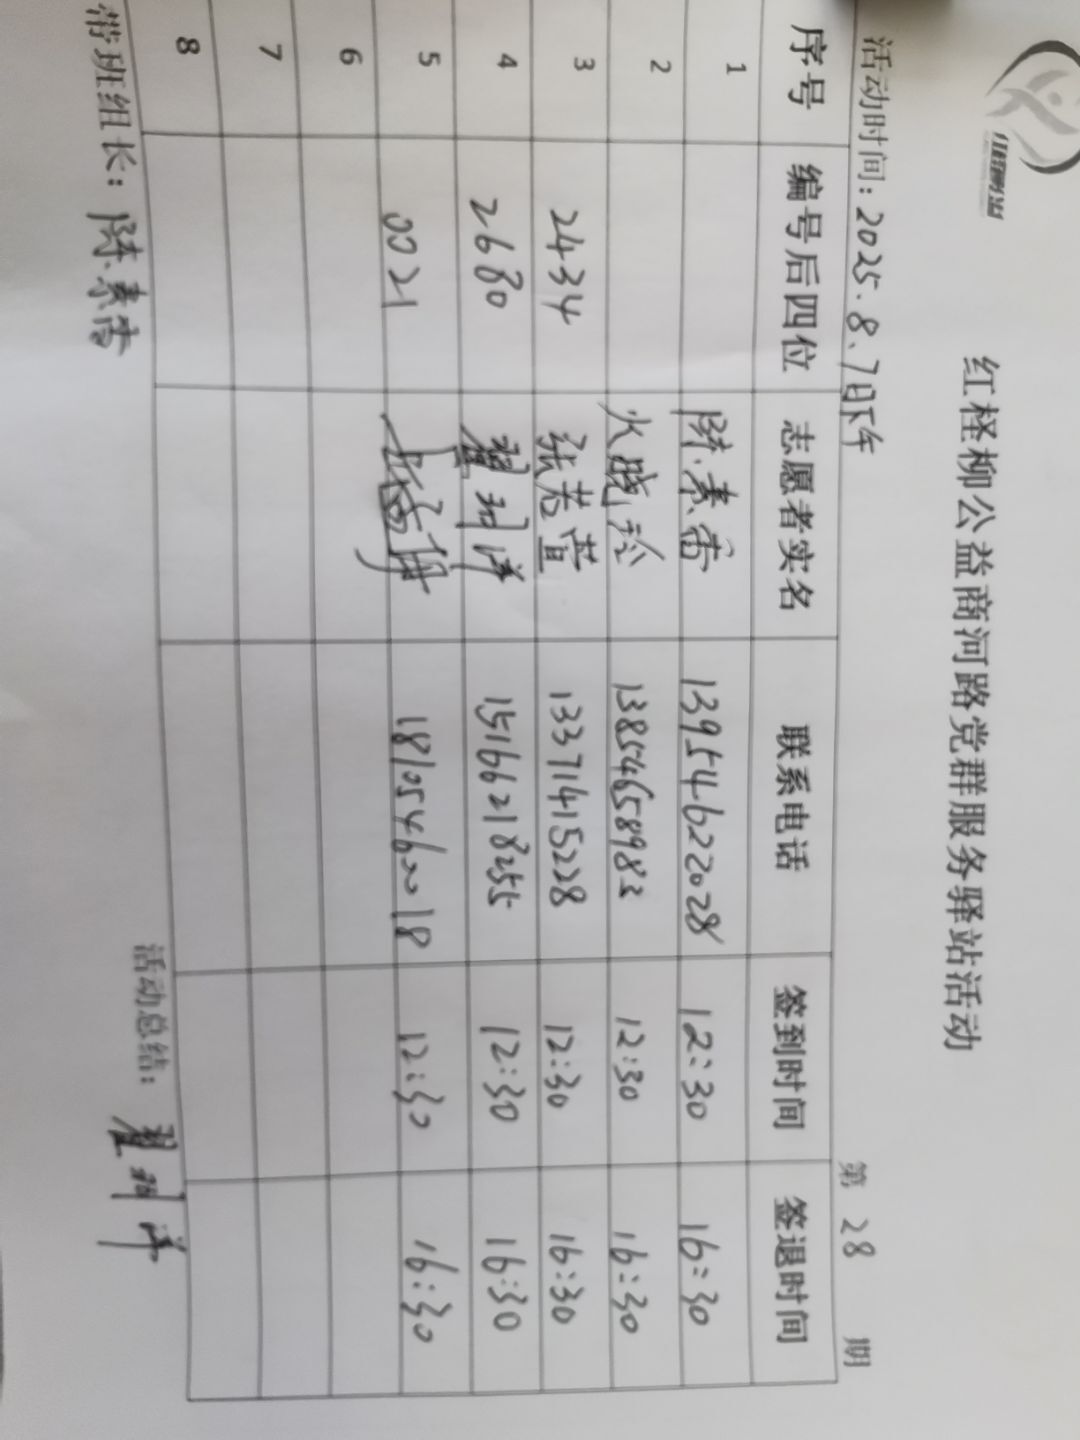 红柽柳公益商河路党群服务驿站活动
活动时间：2025.8.7日下午 第 28 期
序号 编号后四位 志愿者实名 联系电话 签到时间 签退时间
1 陈素雷 13954622028 12:30 16:30
2 火晓玲 13854658983 12:30 16:30
3 2434 张芸萱 13371415228 12:30 16:30
4 2680 翟玥洋 15166218255 12:30 16:30
5 0021 18105460018 12:30 16:30
6
7
8
带班组长：陈素雷 活动总结：翟玥洋